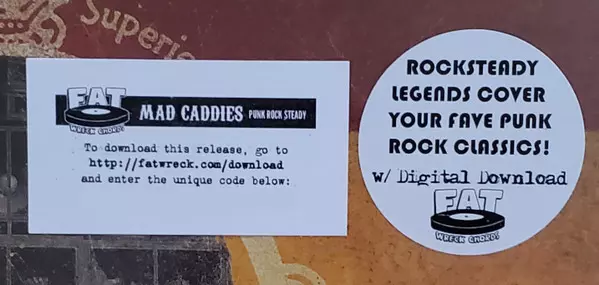 Superio
FAT
WRECK CHORDS
MAD CADDIES PUNK ROCK STEADY
To download this release, go to
http://fatwreck.com/download
and enter the unique code below:
ROCKSTEADY
LEGENDS COVER
YOUR FAVE PUNK
ROCK CLASSICS!
w/ Digital Download
FAT
WRECK CHORDS